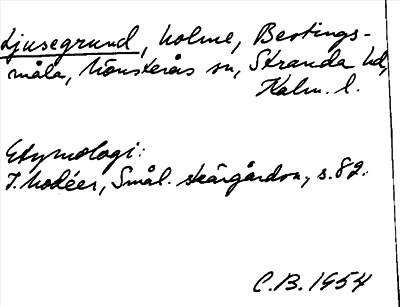 Ljusegrund, holme, Bertings-
måla, Mönsterås sn, Stranda hd,
Kalm. l.
Etymologi:
I. Modéer, Smål. skärgårdsn, s. 82.
C.B. 1954